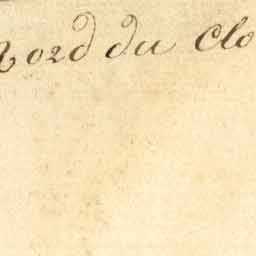 Nord du Clo